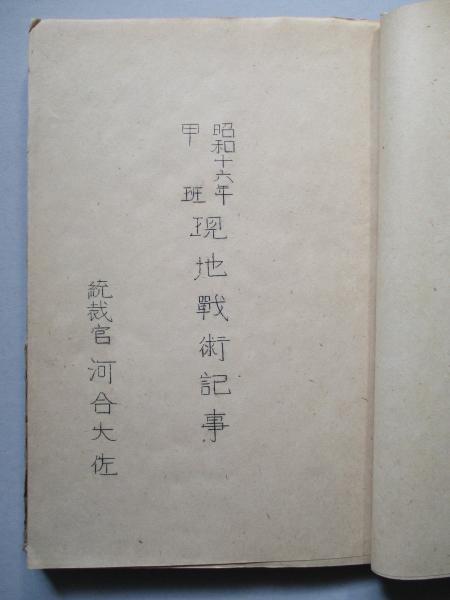 昭和十六年
甲班
現地戰術記事
統裁官 河合大佐